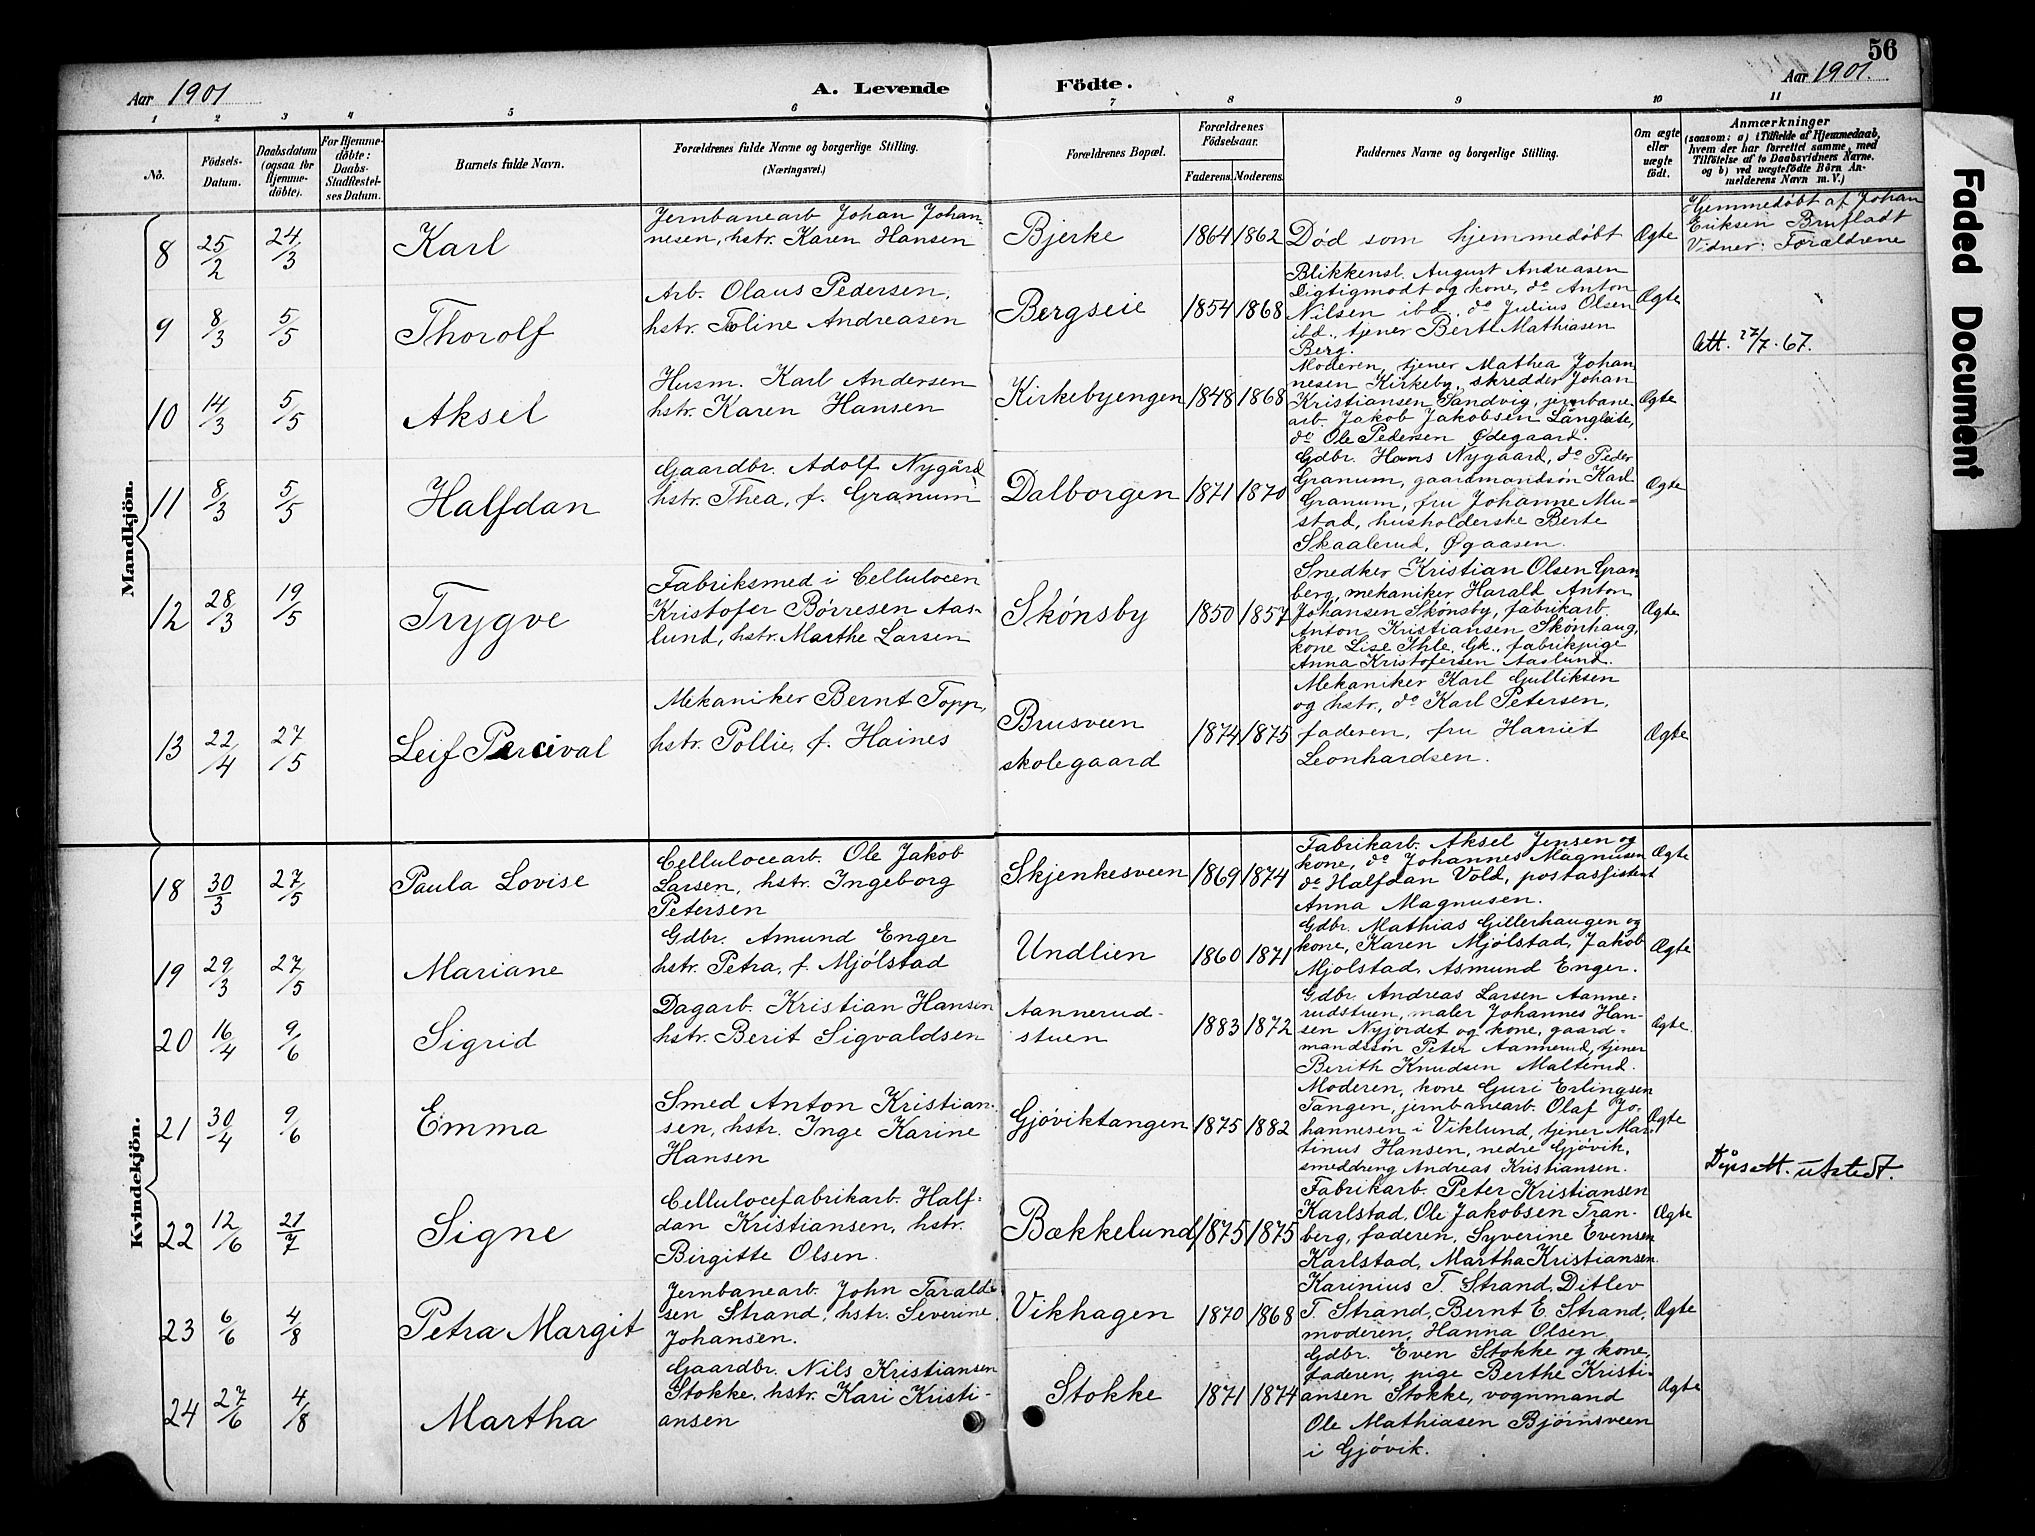 56
Aar 1901
A. Levende Födte.
Aar 1901.
1 2 3 4 5 6 7 8 9 10 11
No.
Födsels-Datum.
Daabsdatum (ogsaa for Hjemmedöbte).
For Hjemmedöbte: Daabs-Stadfestelses Datum.
Barnets fulde Navn.
Forældrenes fulde Navne og borgerlige Stilling.
(Næringsvei.)
Forældrenes Bopæl.
Forældrenes Födselsaar.
Faderens. Moderens.
Faddernes Navne og borgerlige Stilling.
Om ægte eller uægte födt.
Anmærkninger
(saasom: a) i Tilfælde af Hjemmedaab, hvem der har forrettet samme, med Tilföielse af to Daabsvidners Navne, og b) ved uægtefödte Börn Anmelderens Navn m. V.)
Faded Document
Mandkjön.
8 25/2 24/3 Karl
Jernbanearb. Johan Johan-
nesen, hstr. Karen Hansen
Bjerke 1864 1862 Död som hjemmedöbt Ægte
Hjemmedöbt af Johan
Eriksen Brufladt
Vidner: Forældrene
9 8/3 5/5 Thorolf
Arb. Olaus Pedersen,
hstr. Toline Andreasen
Bergseie 1854 1868
Blikkensl. August Andreasen
Digtigmodt og kone, do Anton
Nilsen ibd., do Julius Olsen
ibd., tjener Bertl Mathiasen
Berg.
Ægte
Att. 27/7. 67.
10 14/3 5/5 Aksel
Husm. Karl Andersen
hstr. Karen Hansen
Kirkebyengen 1848 1868
Moderen, tjener Mathea Johan
nesen Kirkeby, skredder Johan
Kristiansen Sandvig, jernbane-
arb. Jakob Jakobsen Långleite,
do Ole Pedersen Ødegaard.
Ægte
11 8/3 5/5 Halfdan
Gaardbr. Adolf Nygård
hstr. Thea, f. Granum
Dalborgen 1871 1870
Gdbr. Hans Nygaard, do Peder
Granum, gaardmandsön Karl
Granum, fru Johanne Mu-
stad, husholderske Berte
Skaalerud, Øgaasen.
Ægte
12 28/3 19/5 Trygve
Fabriksmed i Cellulocen
Kristofer Børresen Aas-
lund, hstr. Marthe Larsen
Skönsby 1850 1857
Snedker Kristian Olsen Gran-
berg, mekaniker Harald Anton
Johansen Skönsby, fabrikarb.
Anton Kristiansen Skönhaug,
kone Lise Ihle, Gk., fabrikpige
Anna Kristofersen Aaslund.
Ægte
13 22/4 27/5 Leif Percival
Mekaniker Bernt Topp,
hstr. Pollie, f. Haines
Brusveen
skolegaard
1874 1875
Mekaniker Karl Gulliksen
og hstr., do Karl Petersen,
faderen, fru Harriet
Leonhardsen.
Ægte
Kvindekjön.
18 30/3 27/5 Paula Lovise
Cellulocearb. Ole Jakob
Larsen, hstr. Ingeborg
Petersen
Skjenkesveen 1869 1874
Fabrikarb. Aksel Jensen og
kone, do Johannes Magnusen
do Halfdan Vold, postassistent
Anna Magnusen.
Ægte
19 29/3 27/5 Mariane
Gdbr. Amund Enger
hstr. Petra, f. Mjölstad
Undlien 1860 1871
Gdbr. Mathias Gillerhaugen og
kone, Karen Mjölstad, Jakob
Mjölstad, Asmund Enger.
Ægte
20 16/4 9/6 Sigrid
Dagarb. Kristian Hansen
hstr. Berit Sigvaldsen
Aannerud-
stuen
1883 1872
Gdbr. Andreas Larsen Aanne-
rudstuen, maler Johannes Han-
sen Nyjordet og kone, gaard-
mandssön Peter Aannerud, tjener
Berith Knudsen Malterud.
Ægte
21 30/4 9/6 Emma
Smed Anton Kristian-
sen, hstr. Inge Karine
Hansen
Gjöviktangen 1875 1882
Moderen, kone Guri Erlingsen
Tangen, jernbanearb. Olaf Jo-
hannesen i Viklund, tjener Mar-
tinus Hansen, nedre Gjövik,
smeddreng Andreas Kristiansen.
Ægte
utstedt.
22 12/6 21/7 Signe
Cellulocefabrikarb. Half-
dan Kristiansen, hstr.
Birgitte Olsen.
Bækkelund 1875 1875
Fabrikarb. Peter Kristiansen
Karlstad, Ole Jakobsen Tran-
berg, faderen, Syverine Evensen
Karlstad, Martha Kristiansen.
Ægte
23 6/6 4/8 Petra Margit
Jernbanearb. John Tarald-
sen Strand, hstr. Severine
Johansen.
Vikhagen 1870 1868
Karinius T. Strand, Ditlev
T. Strand, Bernt E. Strand,
moderen, Hanna Olsen
Ægte
24 27/6 4/8 Martha
Gaardbr. Nils Kristiansen
Stokke, hstr. Kari Kristi-
ansen
Stokke 1871 1874
Gdbr. Even Stokke og kone,
faderen, pige Berthe Kristi-
ansen Stokke, vognmand
Ole Mathiasen Bjørnsveen
i Gjövik.
Ægte